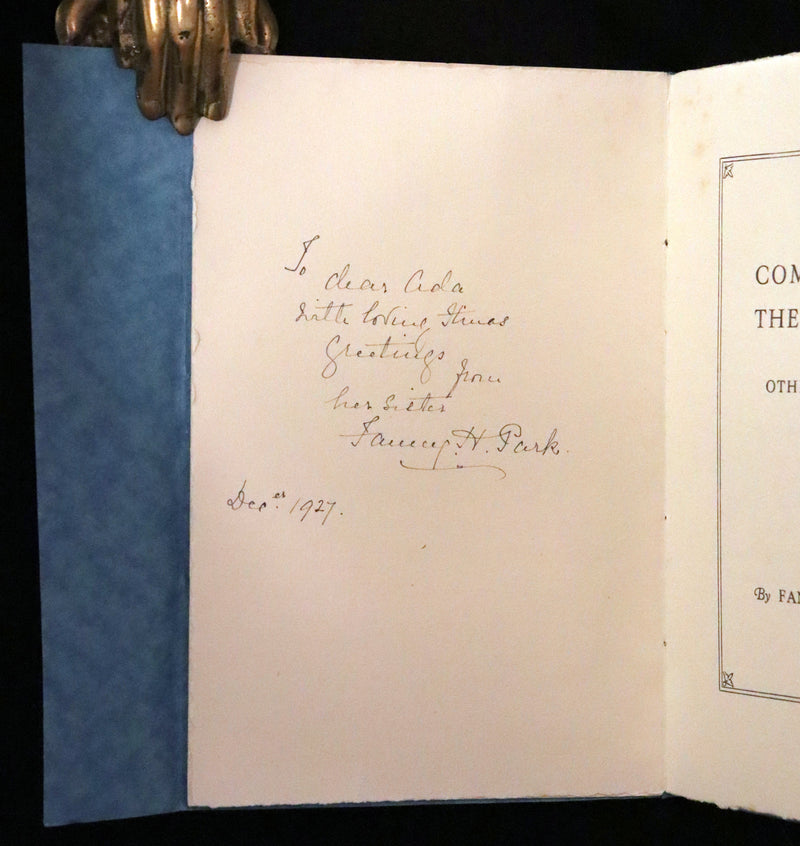 To
dear Ada
with loving Xmas
Greetings
from
her sister
Fanny. H. Park.
Decer. 1927.
COM
THE
OTH
By FAN